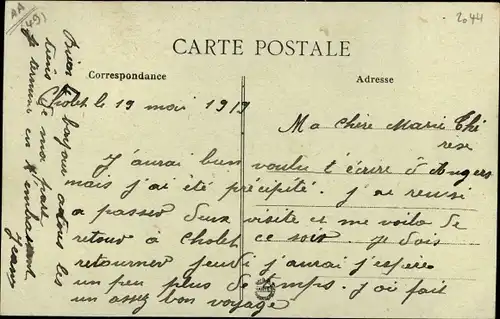 AA
(49)
2044
CARTE POSTALE
Correspondance
Adresse
Cholet le 19 mai 1919
Ma chère Marie Thé
rèse
J'aurai bien voulu t'écrire à Angers
mais j'ai été précipité. J'ai reussi
a passer deux visite et me voila de
retour à Cholet ce soir. Je dois
retourner jeudi j'aurai j'espère
un peu plus de temps. J'ai fait
un assez bon voyage
Bien le bonjour a tous les
tiens de ma part
Je termine en t'embrassant
Jean